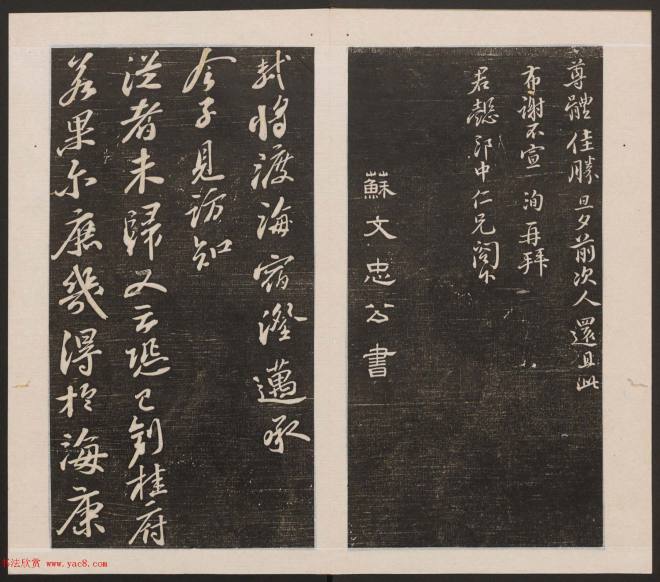 尊體佳勝旦夕前次人還且此
布謝不宣 洵再拜
君懿郎中仁兄閤下
蘇文忠公書
軾將渡海宿澄邁承
令子見訪知
從者未歸又云恐已到桂府
若果爾庶幾得於海康
书法欣赏 www.yac8.com